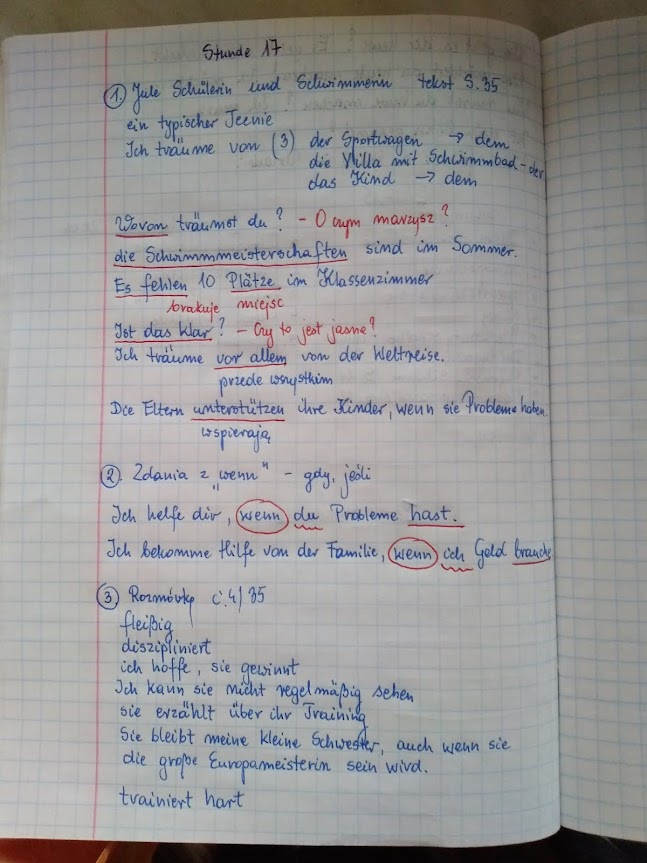 Stunde 17
1. Jule Schülerin und Schwimmerin tekst S. 35
ein typischer Teenie
Ich träume von (3) der Sportwagen → dem
die Villa mit Schwimmbad - der
das Kind → dem
Wovon träumst du? - O czym marzysz?
die Schwimmmeisterschaften sind im Sommer.
Es fehlen 10 Plätze im Klassenzimmer
brakuje miejsc
Ist das klar? - Czy to jest jasne?
Ich träume vor allem von der Weltreise.
przede wszystkim
Die Eltern unterstützen ihre Kinder, wenn sie Probleme haben.
wspierają
2. Zdania z „wenn" - gdy, jeśli
Ich helfe dir, wenn du Probleme hast.
Ich bekomme Hilfe von der Familie, wenn ich Geld brauche
3 Rozmówky ć. 4/35
fleißig
diszipliniert
ich hoffe, sie gewinnt
Ich kann sie nicht regelmäßig sehen
sie erzählt über ihr Training
Sie bleibt meine kleine Schwester, auch wenn sie
die große Europameisterin sein wird.
trainiert hart